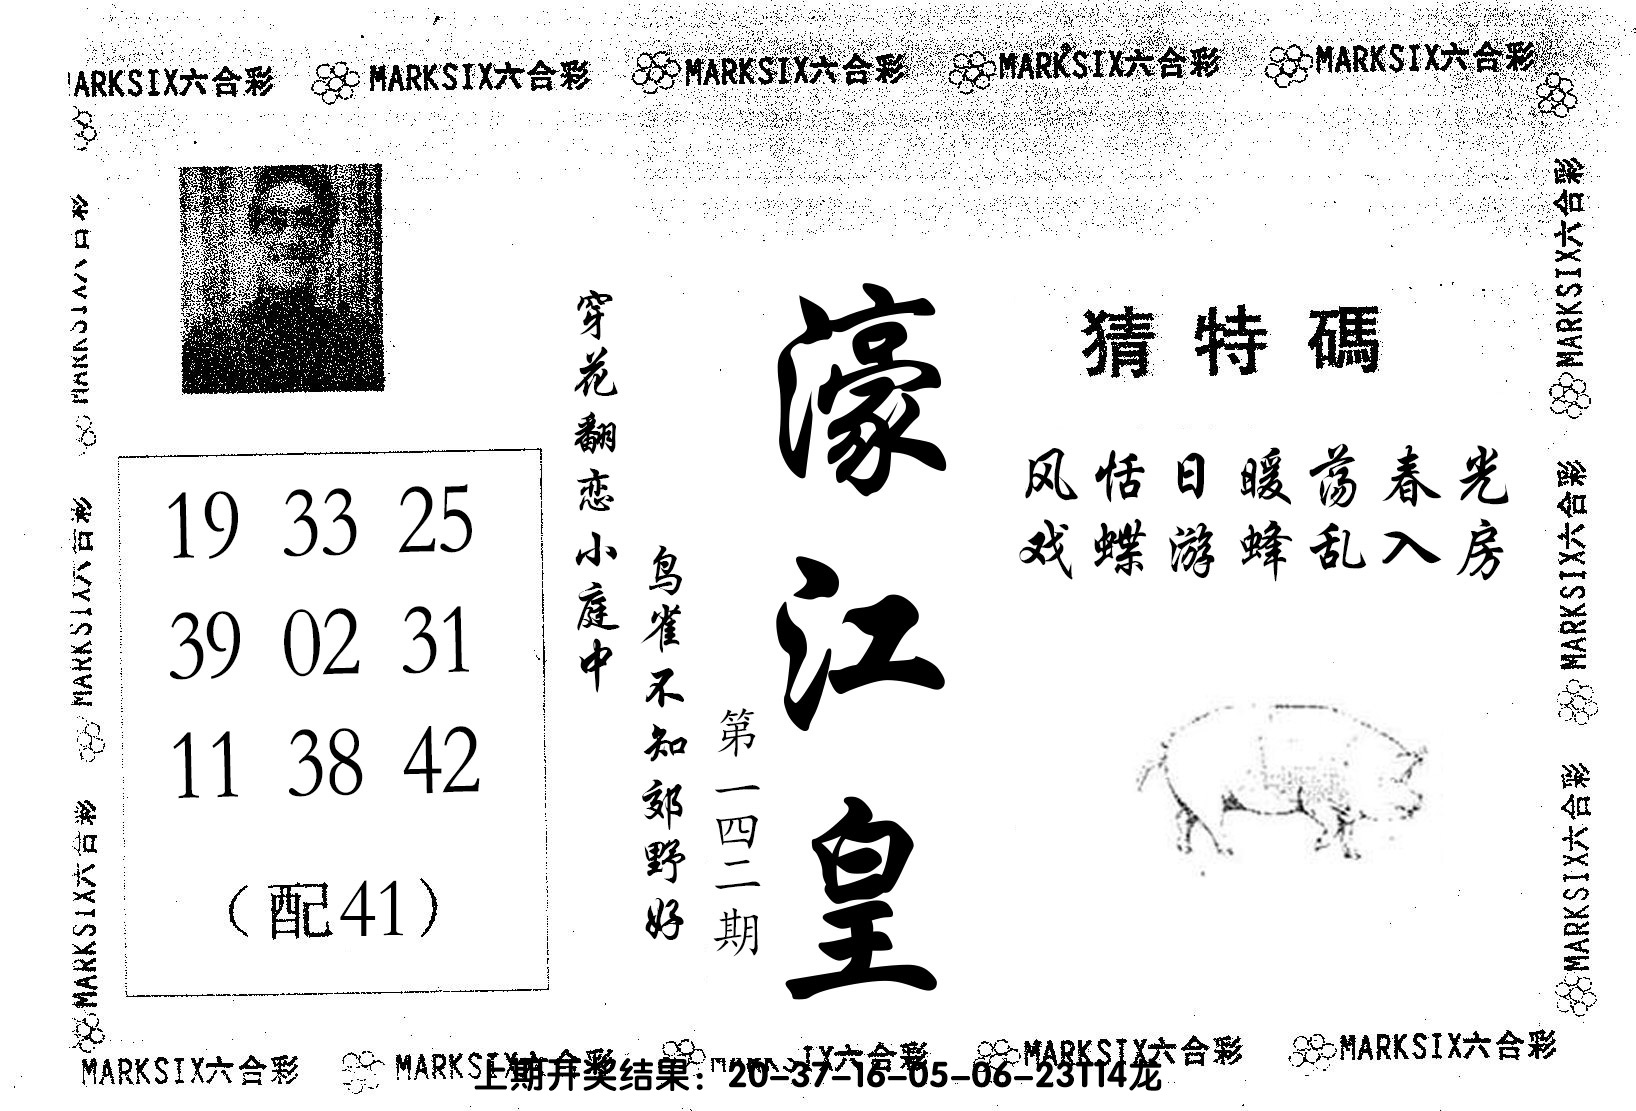 MARKSIX六合彩 MARKSIX六合彩 MARKSIX六合彩 MARKSIX六合彩
猜特碼
风恬日暖荡春光
戏蝶游蜂乱入房
濠江皇
第一四二期
鸟雀不知郊野好
穿花翻恋小庭中
19 33 25
39 02 31
11 38 42
（配41）
MARKSIX六合彩
MARKSIX六合彩
MARKSIX六合彩
MARKSIX六合彩
MARKSIX六合彩
MARKSIX六合彩 MARKSIX六合彩 MARKSIX六合彩 MARKSIX六合彩
上期开奖结果：20-37-16-05-06-23T14龙